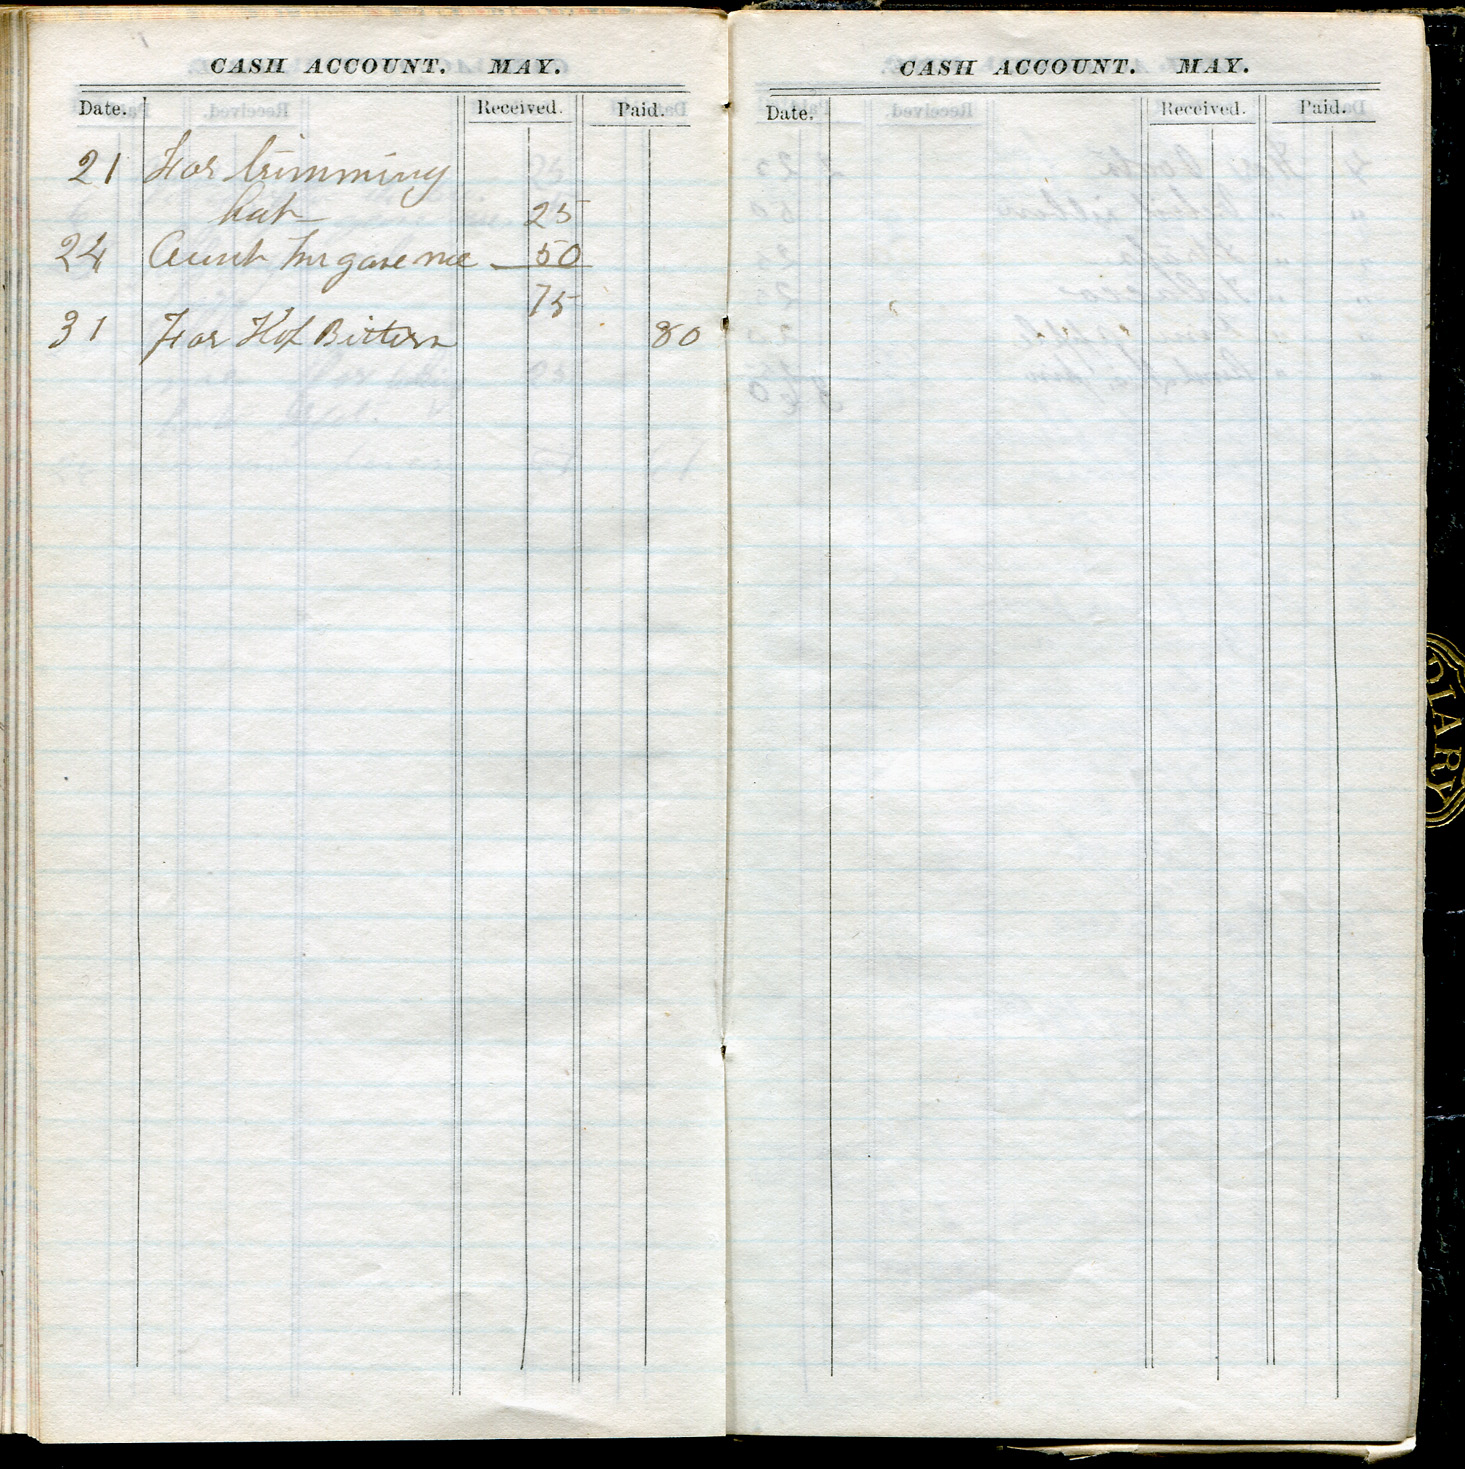 CASH ACCOUNT. MAY.
Date. Received. Paid.
21 For trimming
hat 25
24 Aunt gave me 50
75
31 For Hop Bitters 80
CASH ACCOUNT. MAY.
Date. Received. Paid.
DIARY